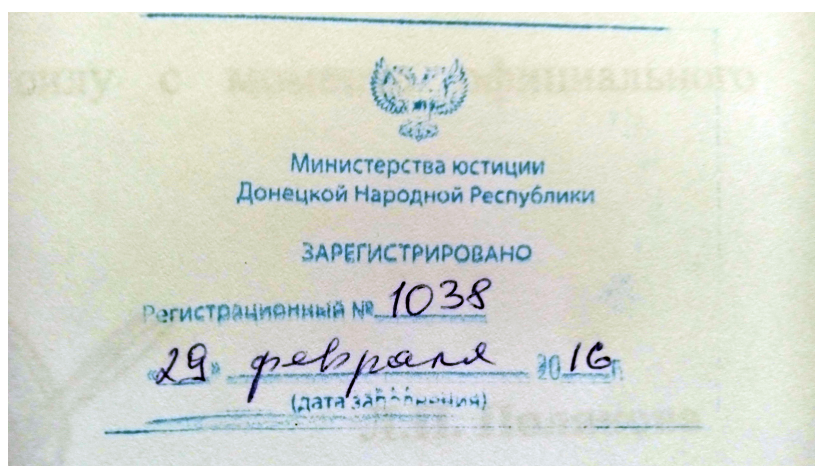 силу с момента официального
Министерства юстиции
Донецкой Народной Республики
ЗАРЕГИСТРИРОВАНО
Регистрационный № 1038
«29» февраля 2016г.
(дата заполнения)
Л.П. Полякова